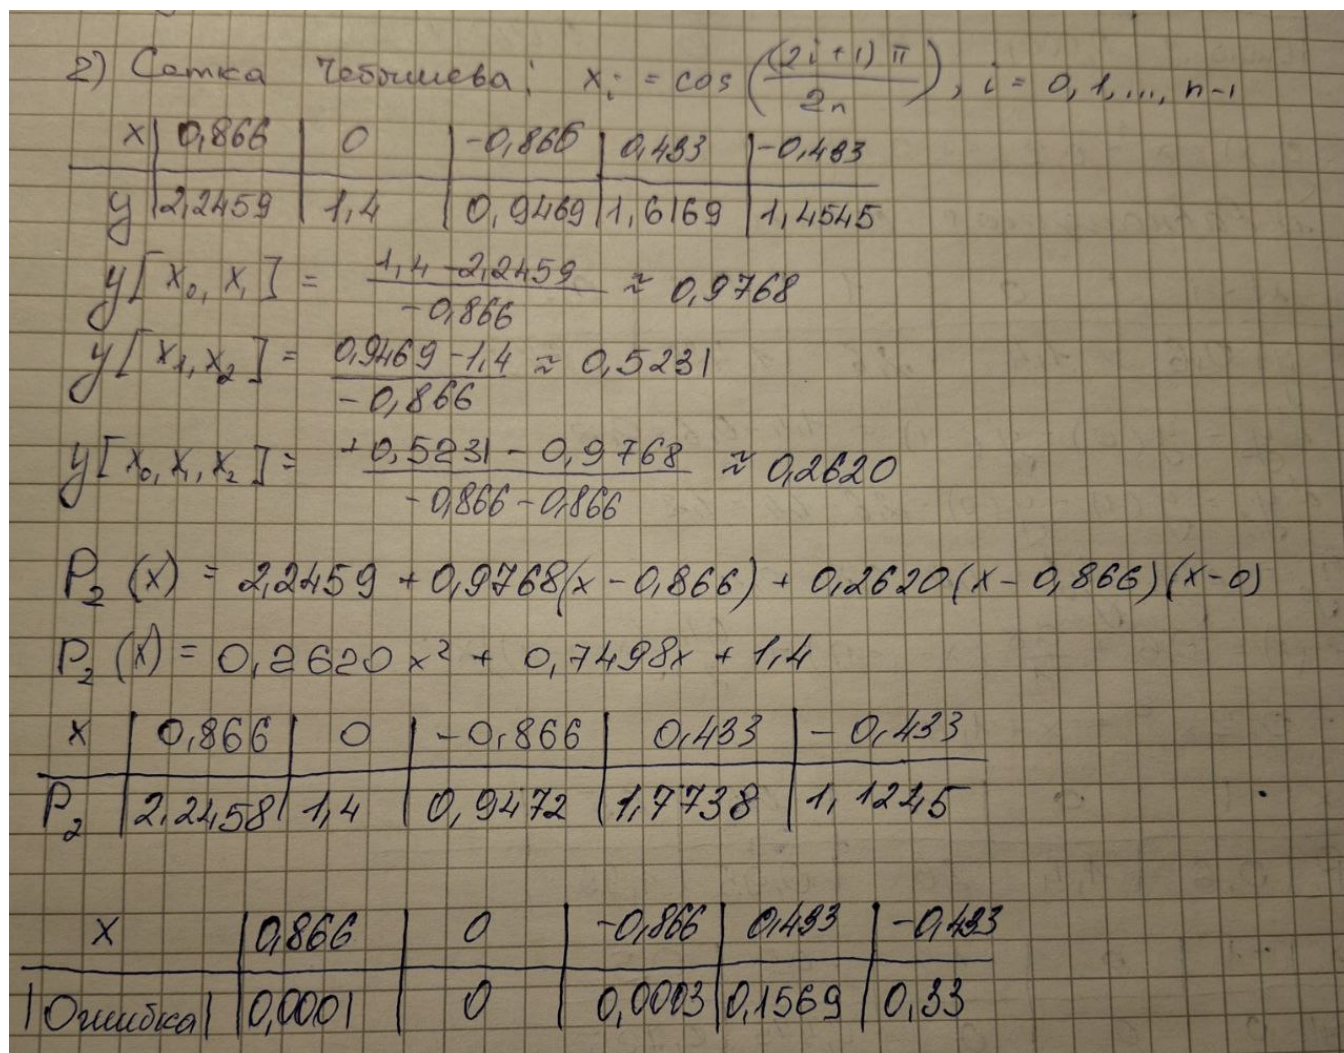 2) Сетка Чебышева: x_i = cos((2i+1)π / 2n), i = 0, 1, ..., n-1
x | 0,866 | 0 | -0,866 | 0,433 | -0,433
y | 2,2459 | 1,4 | 0,9469 | 1,6169 | 1,4545
y[x_0, x_1] = (1,4 - 2,2459) / (-0,866) ≈ 0,9768
y[x_1, x_2] = (0,9469 - 1,4) / (-0,866) ≈ 0,5231
y[x_0, x_1, x_2] = (+0,5231 - 0,9768) / (-0,866 - 0,866) ≈ 0,2620
P_2(x) = 2,2459 + 0,9768(x - 0,866) + 0,2620(x - 0,866)(x - 0)
P_2(x) = 0,2620x² + 0,7498x + 1,4
x | 0,866 | 0 | -0,866 | 0,433 | -0,433
P_2 | 2,2458 | 1,4 | 0,9472 | 1,7738 | 1,1245
x | 0,866 | 0 | -0,866 | 0,433 | -0,433
|Ошибка| | 0,0001 | 0 | 0,0003 | 0,1569 | 0,33